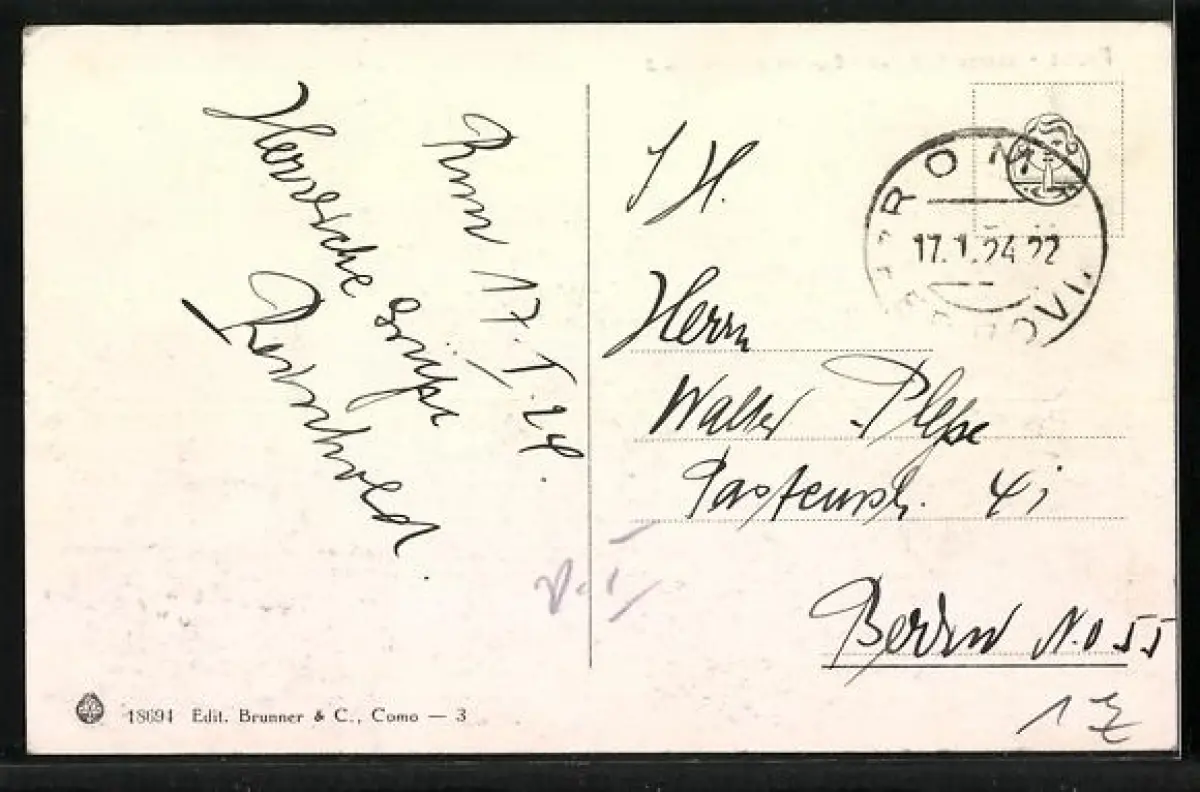 Rom 17. I. 24.
Herzliche Grüße
Reinhold.
S. H.
Herrn
Walter Plesse
Pasteurstr. 41
Berlin N.O 55
ROMA
17.1.24 22
18694 Edit. Brunner & C., Como — 3